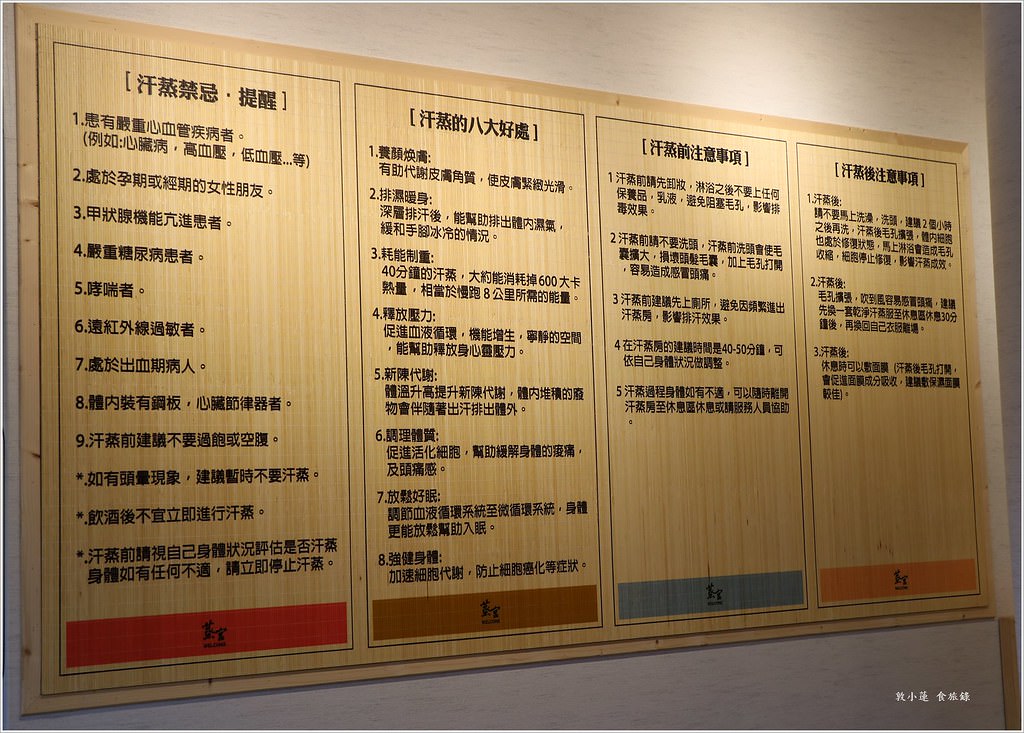 [ 汗蒸禁忌‧提醒 ]
1.患有嚴重心血管疾病者。
(例如:心臟病，高血壓，低血壓...等)
2.處於孕期或經期的女性朋友。
3.甲狀腺機能亢進患者。
4.嚴重糖尿病患者。
5.哮喘者。
6.遠紅外線過敏者。
7.處於出血期病人。
8.體內裝有鋼板，心臟節律器者。
9.汗蒸前建議不要過飽或空腹。
*.如有頭暈現象，建議暫時不要汗蒸。
*.飲酒後不宜立即進行汗蒸。
*.汗蒸前請視自己身體狀況評估是否汗蒸
身體如有任何不適，請立即停止汗蒸。
蒸宮
WELCOME
[ 汗蒸的八大好處 ]
1.養顏煥膚:
有助代謝皮膚角質，使皮膚緊緻光滑。
2.排濕暖身:
深層排汗後，能幫助排出體內濕氣，
緩和手腳冰冷的情況。
3.耗能制重:
40分鐘的汗蒸，大約能消耗掉600大卡
熱量，相當於慢跑8公里所需的能量。
4.釋放壓力:
促進血液循環，機能增生，寧靜的空間
，能幫助釋放身心靈壓力。
5.新陳代謝:
體溫升高提升新陳代謝，體內堆積的廢
物會伴隨著出汗排出體外。
6.調理體質:
促進活化細胞，幫助緩解身體的痠痛，
及頭痛感。
7.放鬆好眠:
調節血液循環系統至微循環系統，身體
更能放鬆幫助入眠。
8.強健身體:
加速細胞代謝，防止細胞癌化等症狀。
蒸宮
WELCOME
[ 汗蒸前注意事項 ]
1 汗蒸前請先卸妝，淋浴之後不要上任何
保養品，乳液，避免阻塞毛孔，影響排
毒效果。
2 汗蒸前請不要洗頭，汗蒸前洗頭會使毛
囊擴大，損壞頭髮毛囊，加上毛孔打開
，容易造成感冒頭痛。
3 汗蒸前建議先上廁所，避免因頻繁進出
汗蒸房，影響排汗效果。
4 在汗蒸房的建議時間是40-50分鐘，可
依自己身體狀況做調整。
5 汗蒸過程身體如有不適，可以隨時離開
汗蒸房至休息區休息或請服務人員協助
。
蒸宮
WELCOME
[ 汗蒸後注意事項 ]
1.汗蒸後:
請不要馬上洗澡，洗頭，建議2個小時
之後再洗，汗蒸後毛孔擴張，體內細胞
也處於修復狀態，馬上淋浴會造成毛孔
收縮，細胞停止修復，影響汗蒸成效。
2.汗蒸後:
毛孔擴張，吹到風容易感冒頭痛，建議
先換一套乾淨汗蒸服至休息區休息30分
鐘後，再換回自己衣服離場。
3.汗蒸後:
休息時可以敷面膜 (汗蒸後毛孔打開，
會促進面膜成分吸收，建議敷保濕面膜
較佳)。
蒸宮
WELCOME
敦小蓮 食旅錄